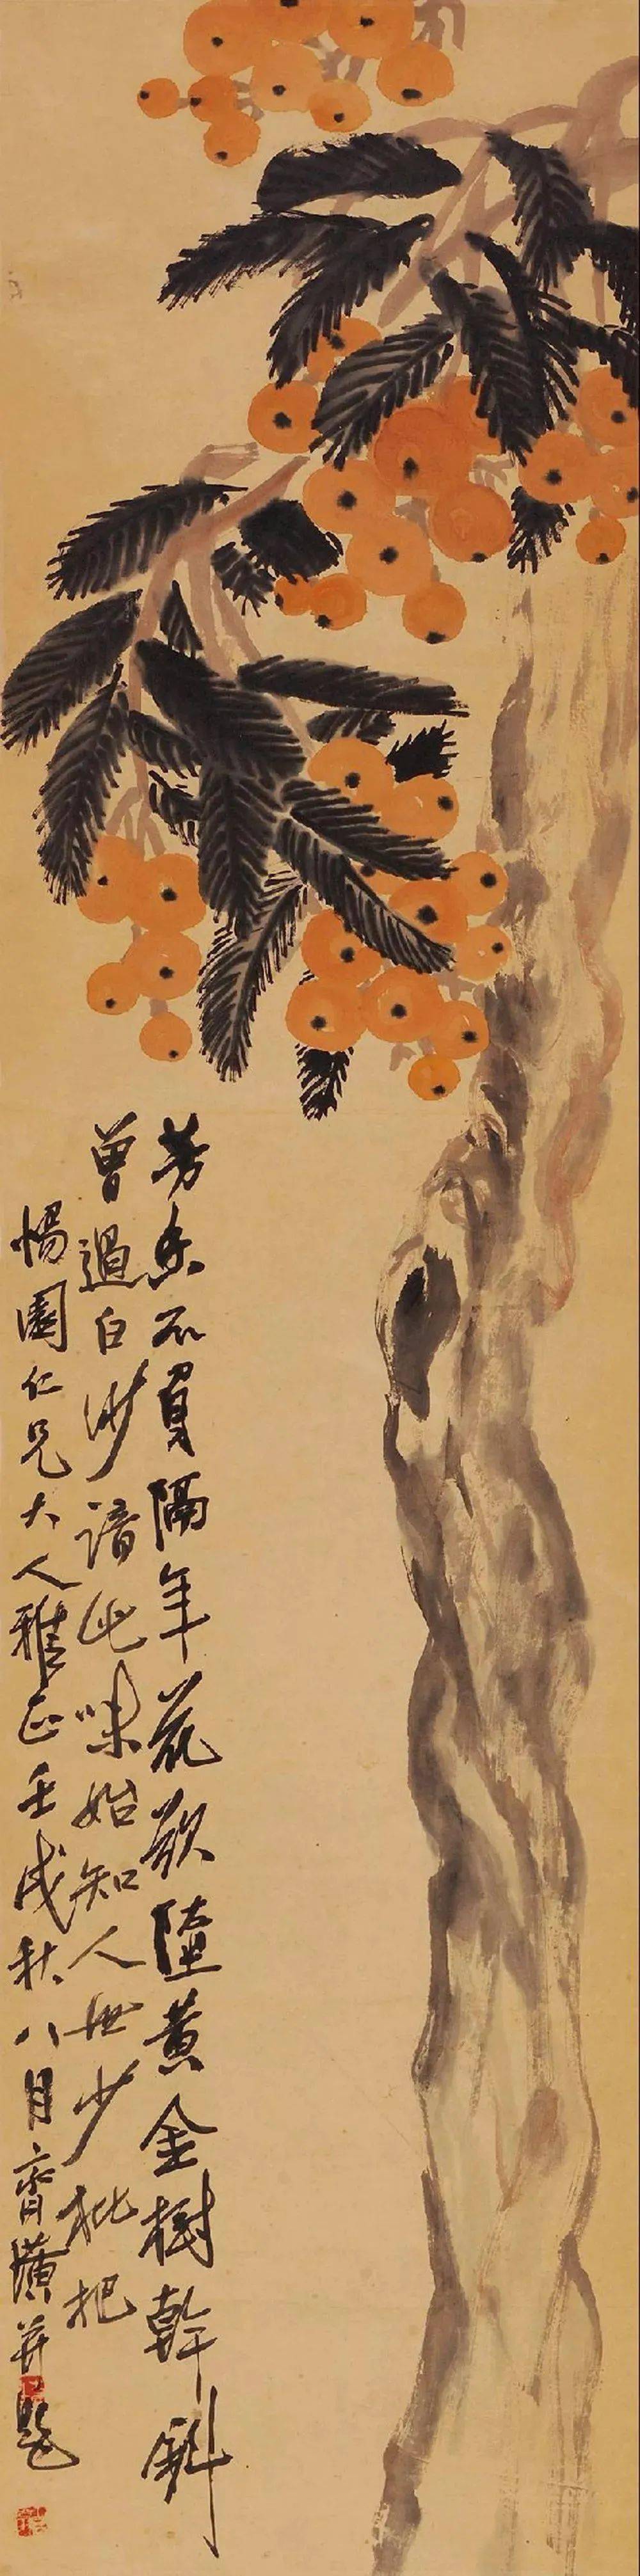 芳香不負隔年花欲墮黃金樹幹斜
曾過白沙諳此味始知人世少枇杷
惕園仁兄大人雅正壬戌秋八月齊璜并題